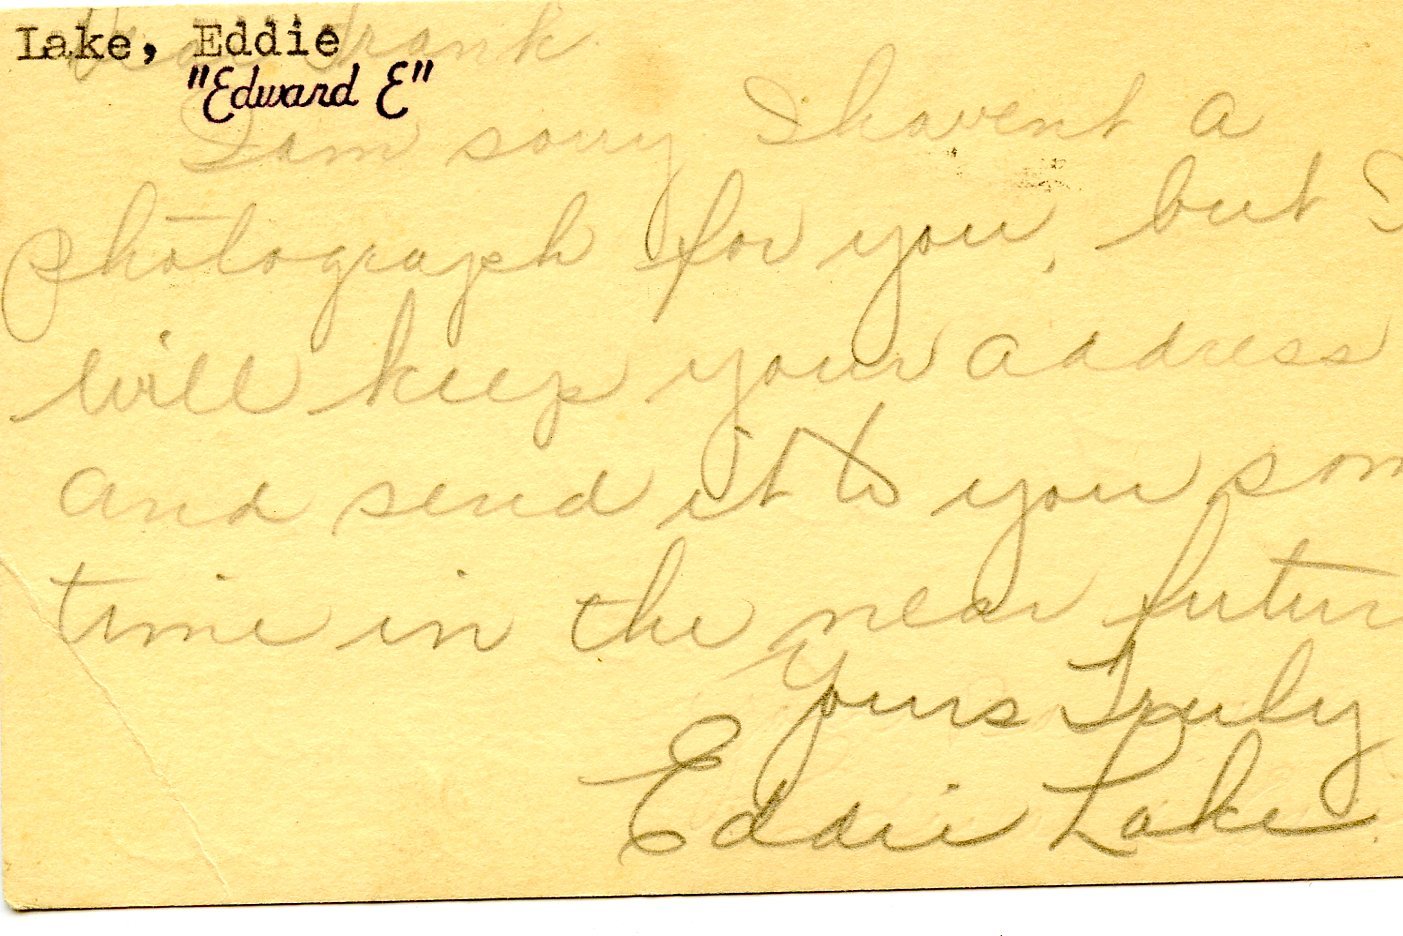 Lake, Eddie
"Edward E"
Dear Frank
I am sorry I havent a
photograph for you, but I
will keep your address
and send it to you som
time in the near futur
Yours Truly
Eddie Lake